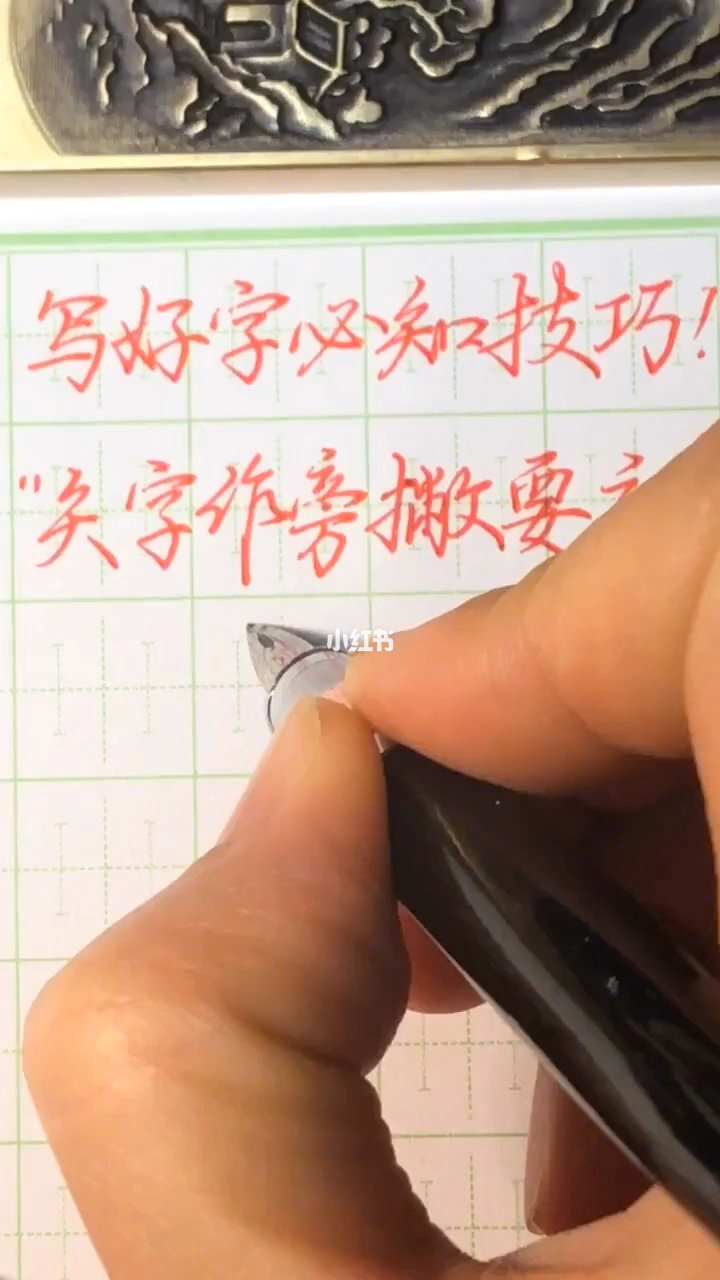 写好字必知技巧!
“矢字作旁撇要
小红书